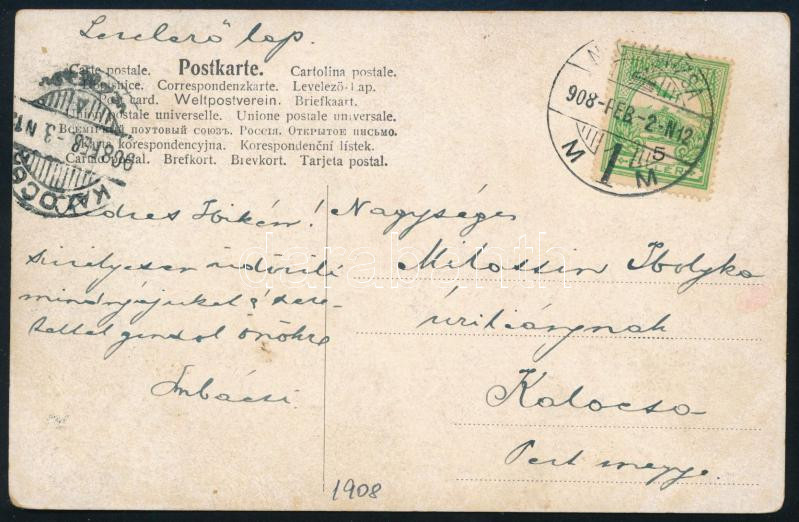 Levelező lap.
Carte postale. Postkarte. Cartolina postale.
Correspondenzkarte. Levelező-Lap.
Post card. Weltpostverein. Briefkaart.
Union postale universelle. Unione postale universale.
Всемірный почтовый союзъ. Россія. Открытое письмо.
Karta korespondencyjna. Korespondenční lístek.
Cartão postal. Brefkort. Brevkort. Tarjeta postal.
908-FEB.-2-N12
5
M 1 M
KALOCSA
908 FEB - 3 N1
Édes Ibikém!
Szivélyesen üdvözli
mindnyájukat és szere-
tettel gondol önökre
Imbácsi
Nagysägos
Milassin Ibolyka
úrileánynak
Kalocsa
Pest megye.
1908
darabanth